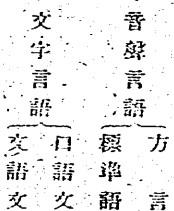 音聲言語
方言
標準語
文字言語
口語文
文語文